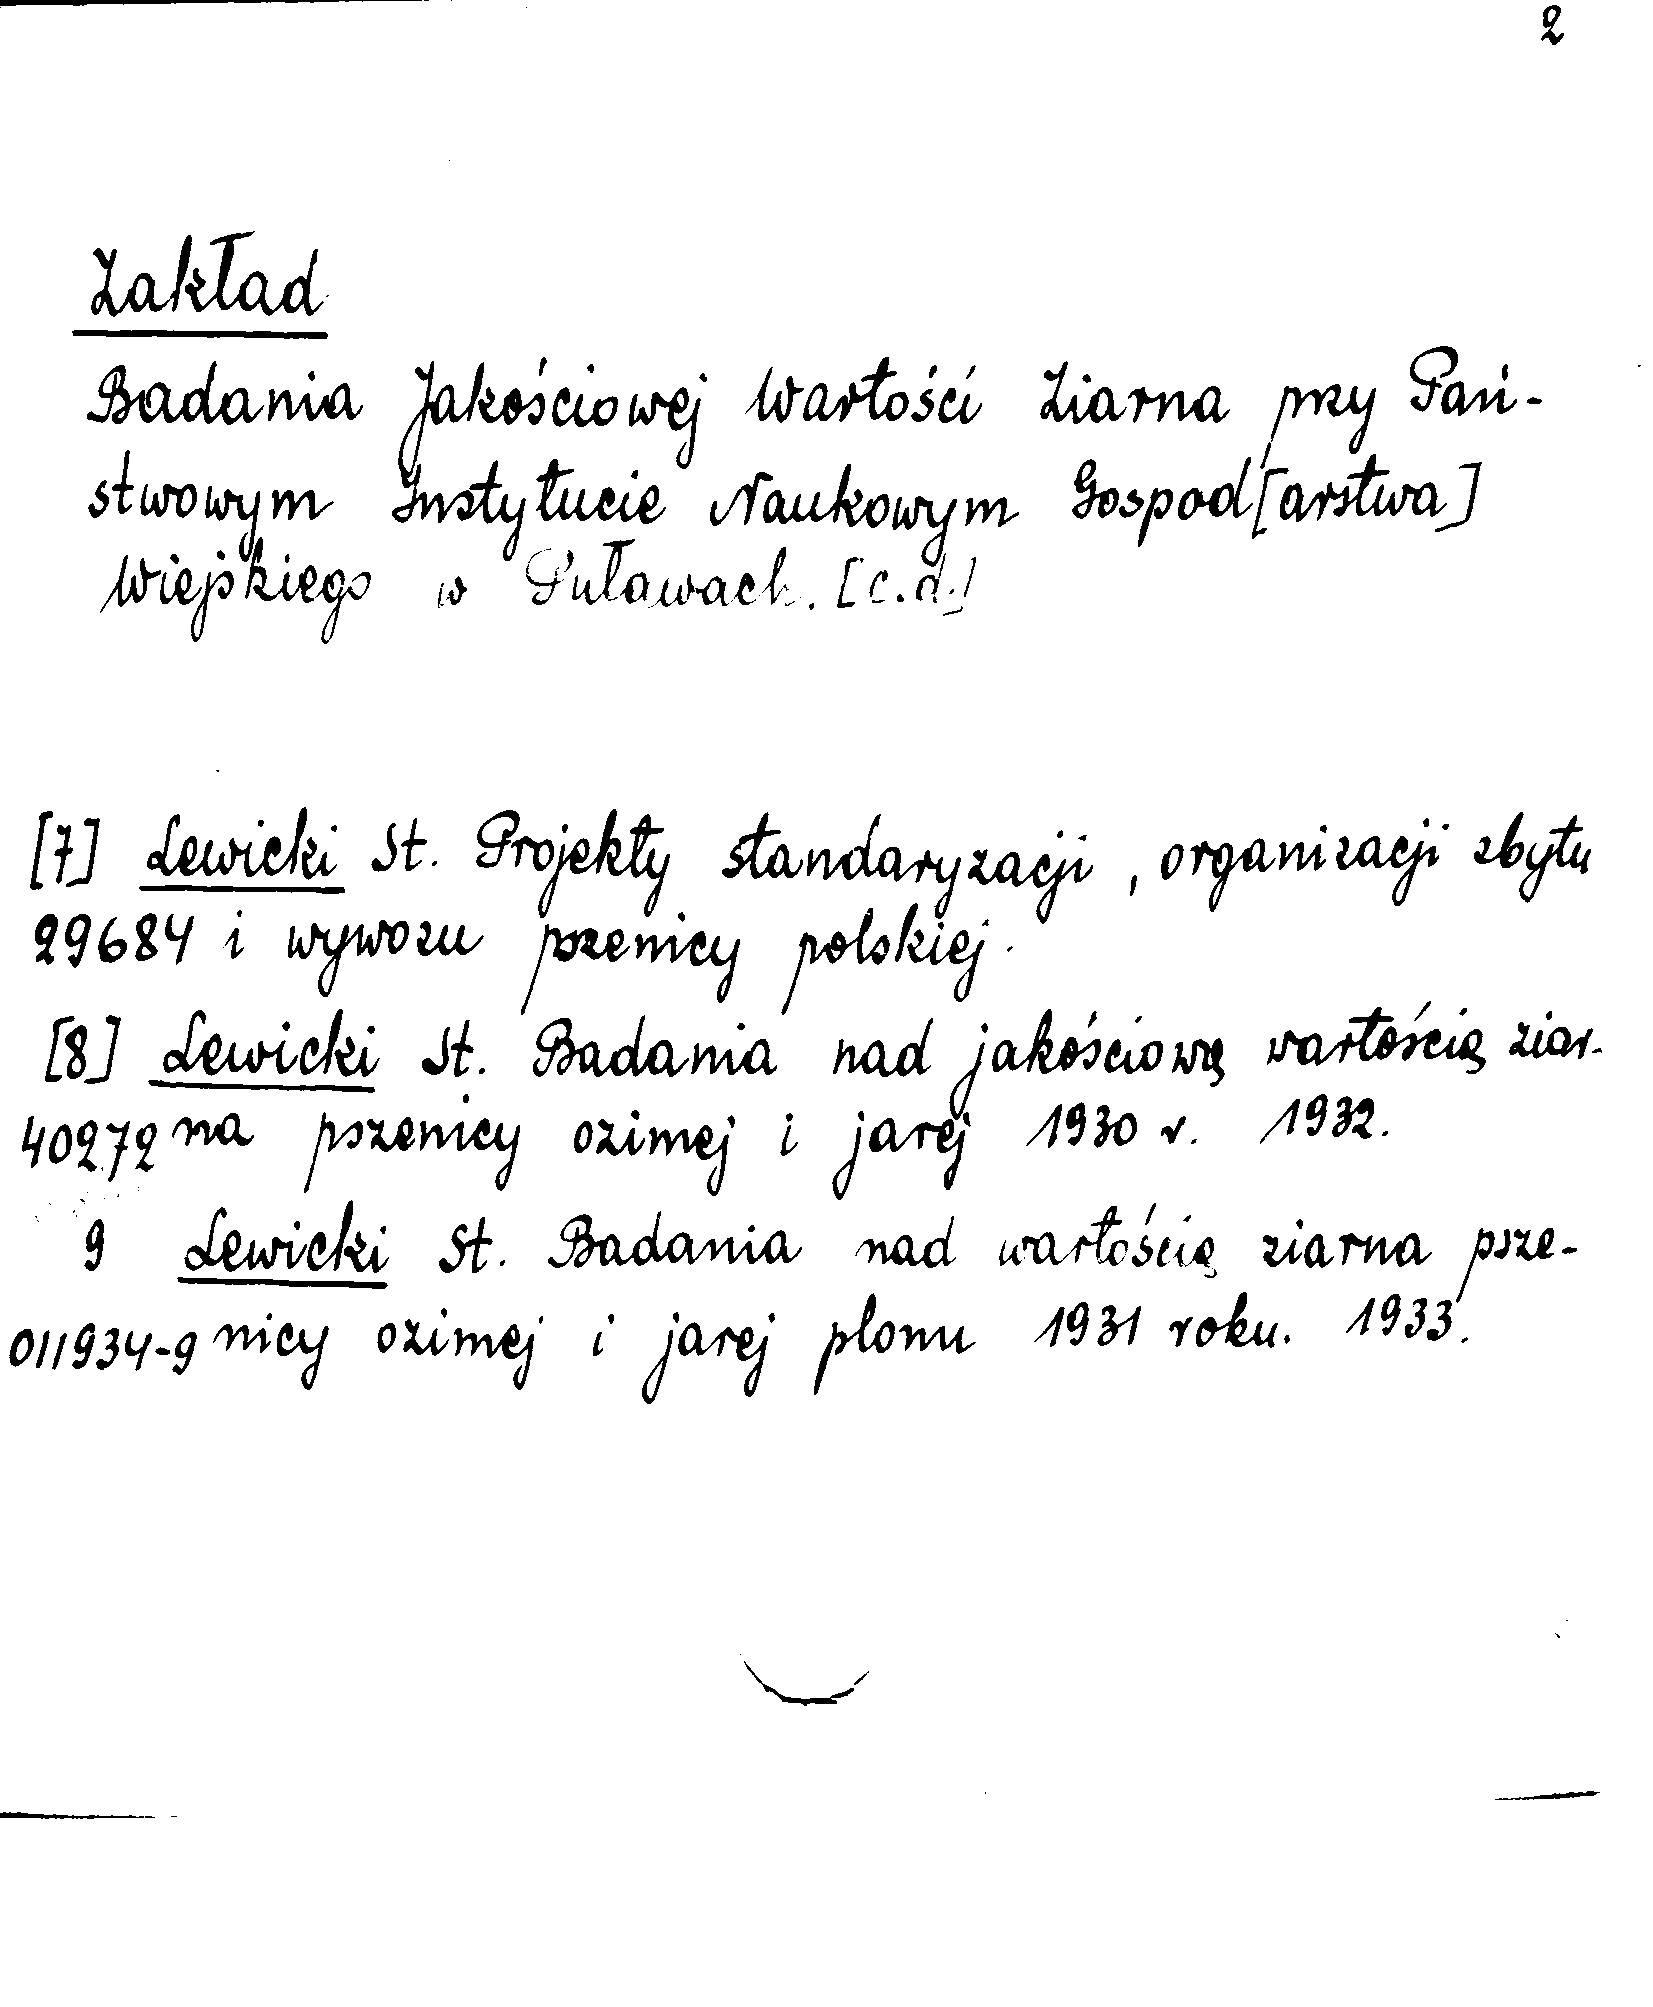 2
Zakład
Badania Jakościowej Wartości Ziarna przy Pań-
stwowym Instytucie Naukowym Gospod[arstwa]
Wiejskiego w Puławach. [c.d.]
[7] Lewicki St. Projekty standaryzacji, organizacji zbytu
29684 i wywozu pszenicy polskiej.
[8] Lewicki St. Badania nad jakościową wartością ziar-
40272 na pszenicy ozimej i jarej 1930 r. 1932.
9 Lewicki St. Badania nad wartością ziarna psze-
011934-9 nicy ozimej i jarej plonu 1931 roku. 1933.